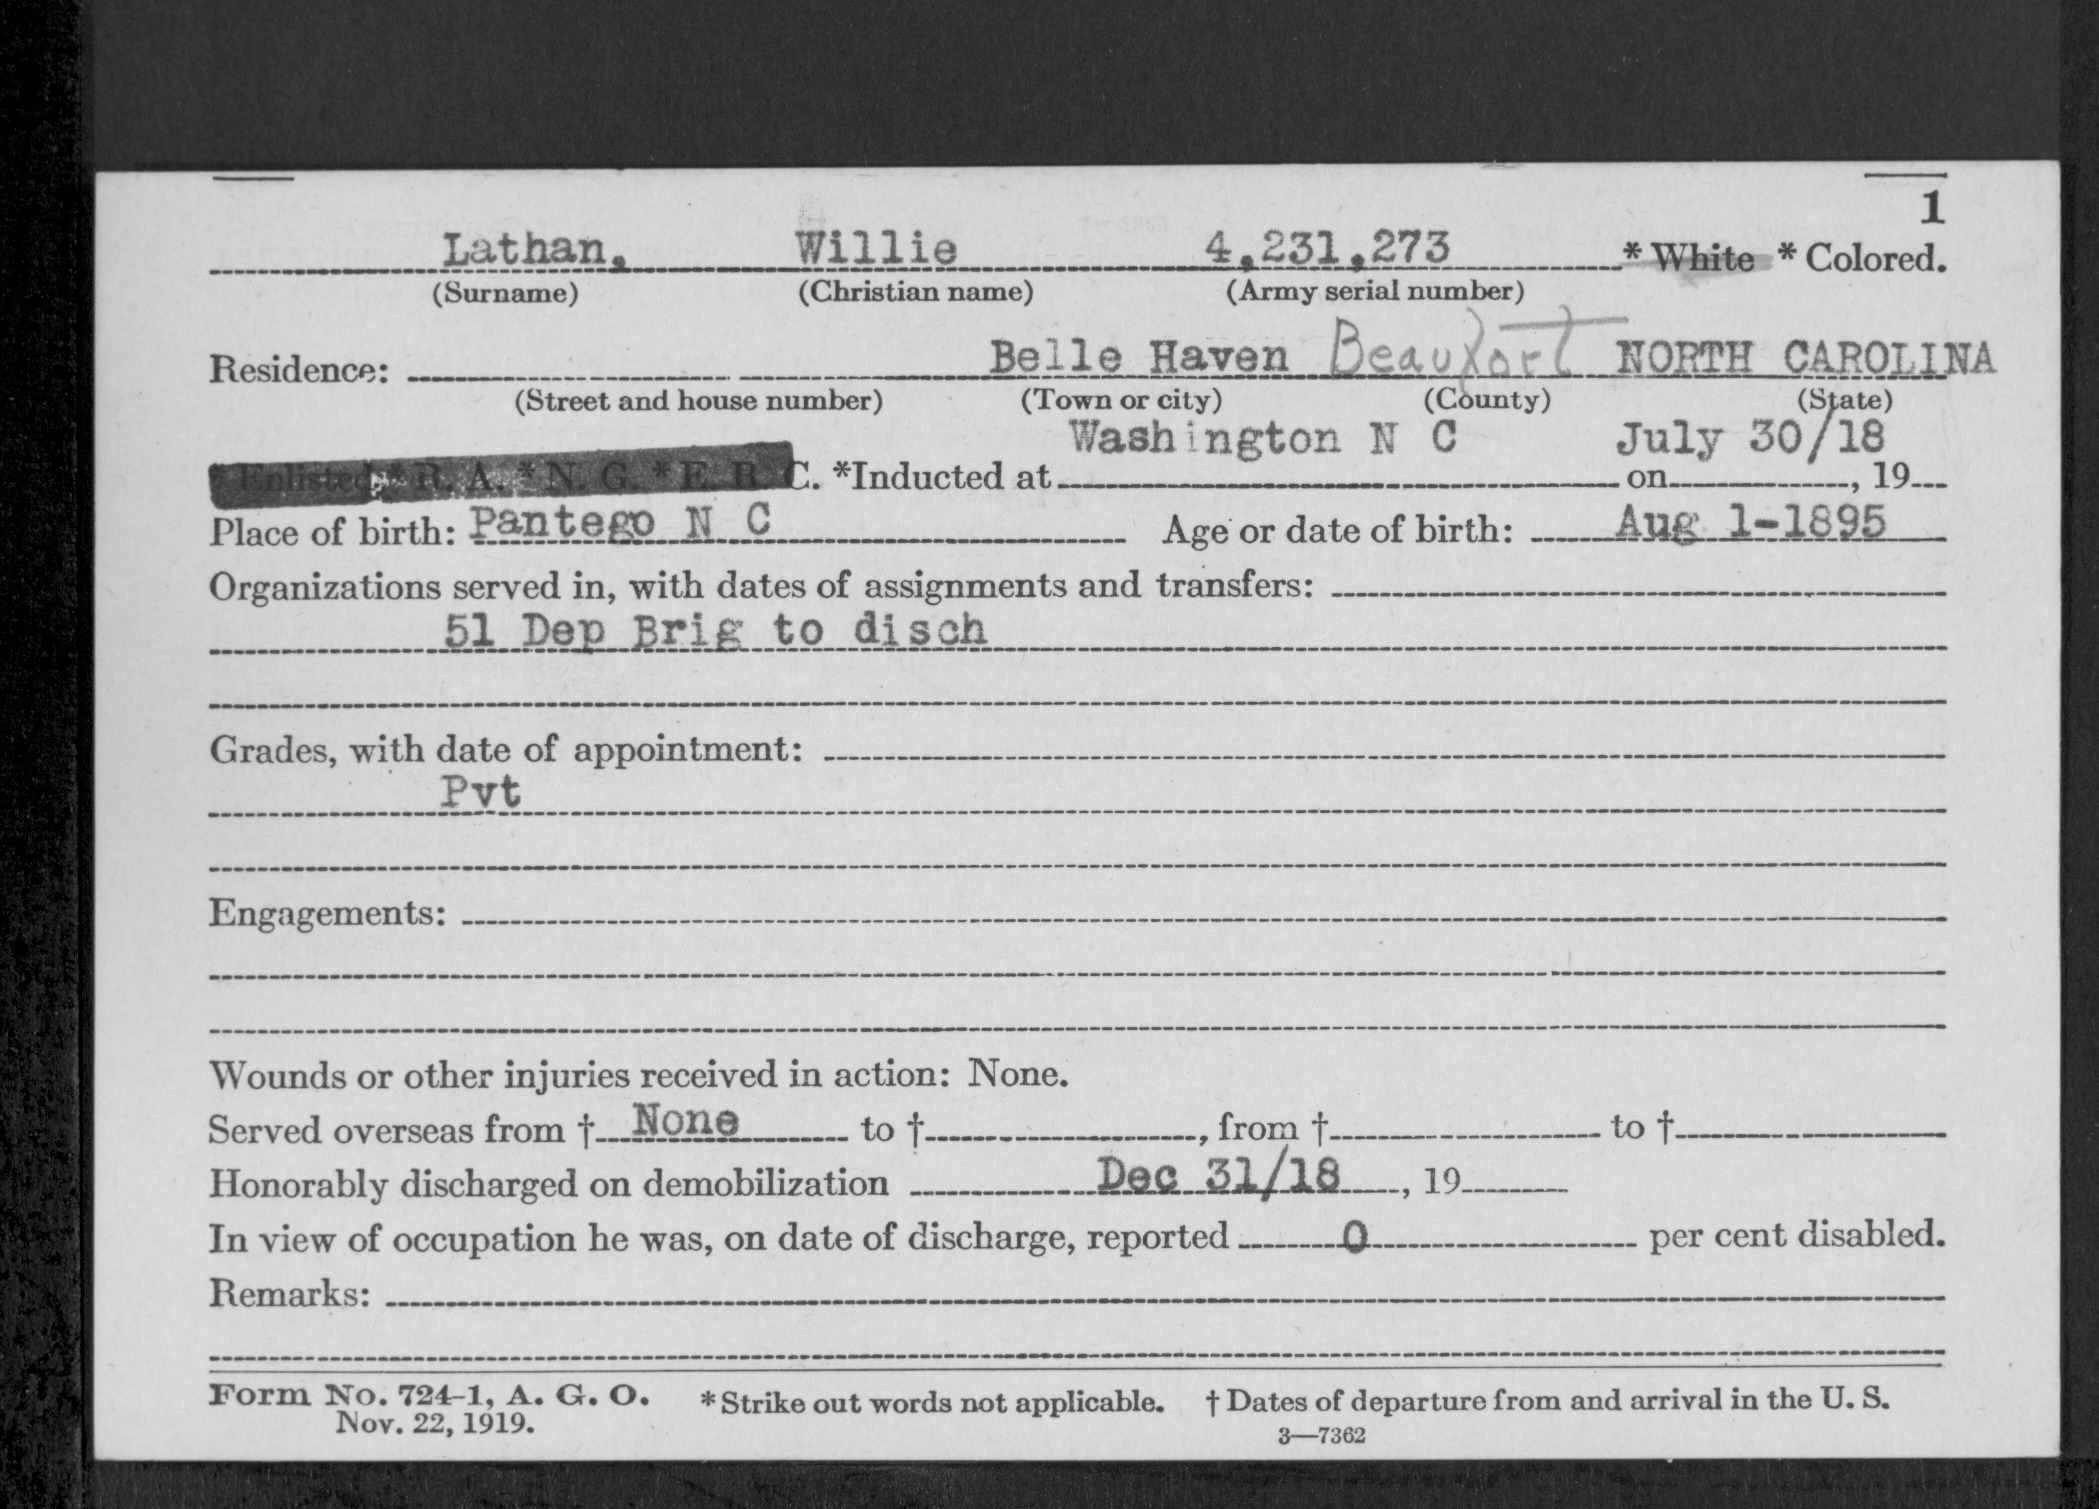 1
Lathan, Willie 4,231,273 * White * Colored.
(Surname) (Christian name) (Army serial number)
Residence: Belle Haven Beaufort NORTH CAROLINA
(Street and house number) (Town or city) (County) (State)
Washington N C July 30/18
* Enlisted * R. A. * N. G. * E. R. C. *Inducted at on , 19
Place of birth: Pantego N C Age or date of birth: Aug 1-1895
Organizations served in, with dates of assignments and transfers:
51 Dep Brig to disch
Grades, with date of appointment:
Pvt
Engagements:
Wounds or other injuries received in action: None.
Served overseas from † None to † , from † to †
Honorably discharged on demobilization Dec 31/18 , 19
In view of occupation he was, on date of discharge, reported 0 per cent disabled.
Remarks:
Form No. 724-1, A. G. O. * Strike out words not applicable. † Dates of departure from and arrival in the U. S.
Nov. 22, 1919. 3—7362